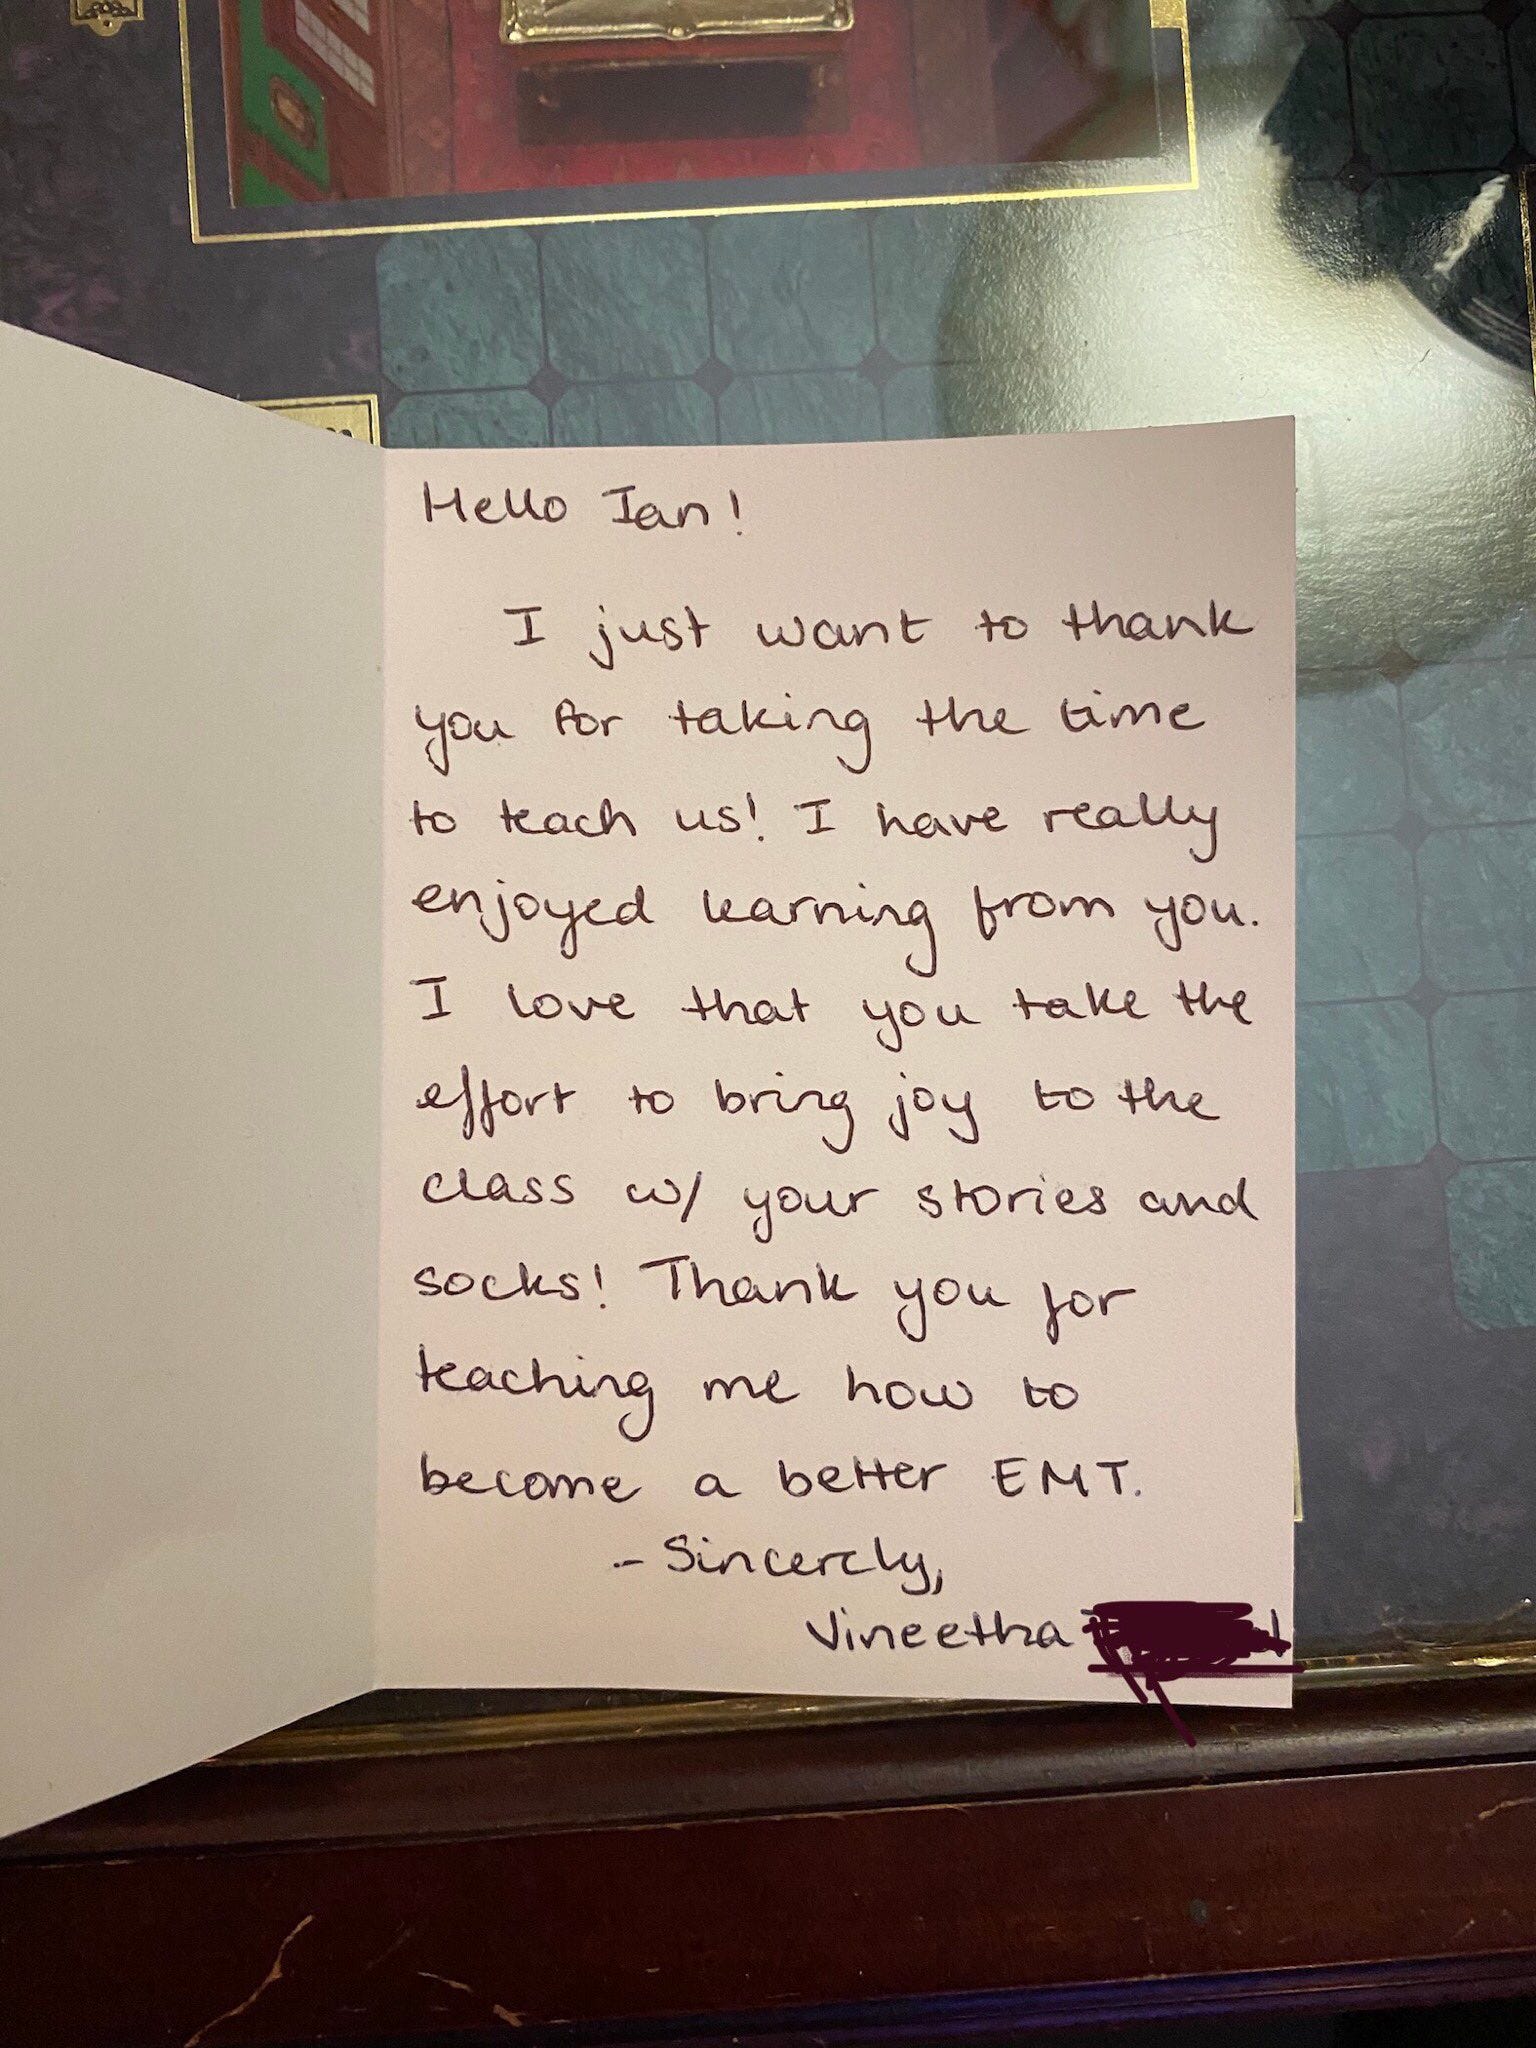 Hello Ian!
I just want to thank
you for taking the time
to teach us! I have really
enjoyed learning from you.
I love that you take the
effort to bring joy to the
class w/ your stories and
socks! Thank you for
teaching me how to
become a better EMT.
- Sincerely,
Vineetha